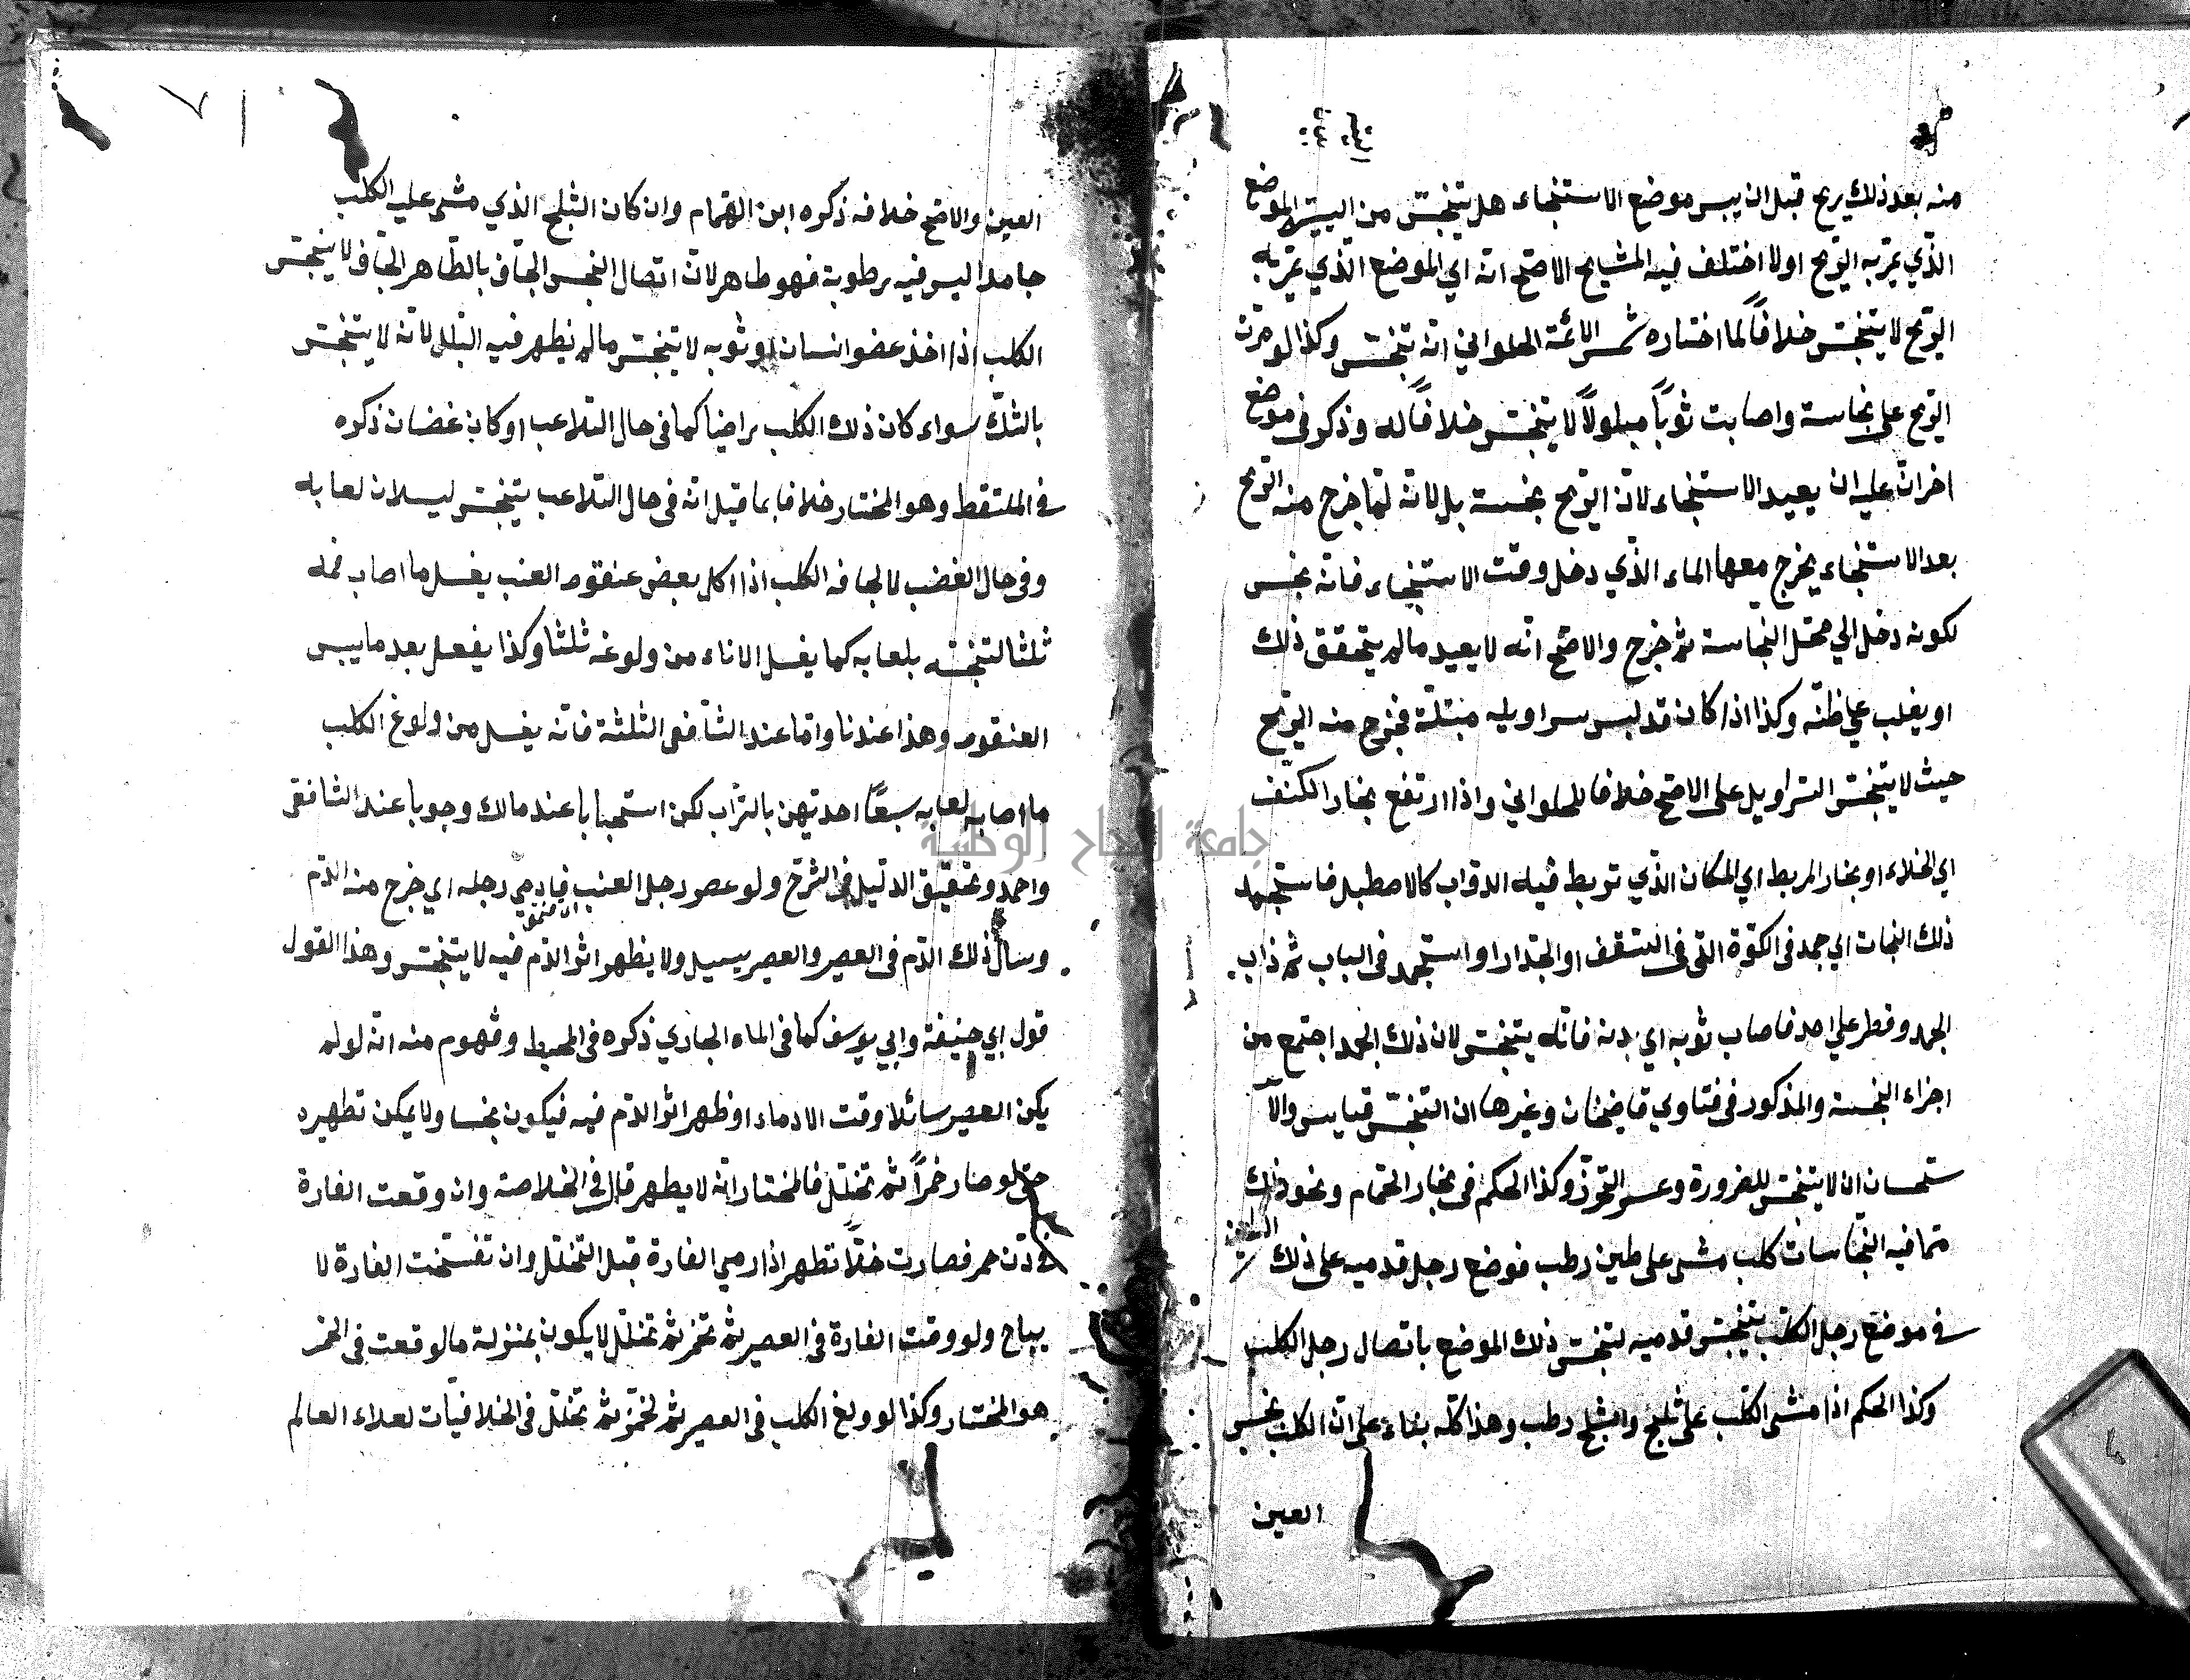 منه بعد ذلك ريح قبل ان ييبس موضع الاستنجاء هل يتنجس من اليتيه الموضع
الذي يمر به الريح اولا اختلف فيه المشايخ الاصح انه اي الموضع الذي تمر به
الريح لا يتنجس خلافا لما اختاره شمس الائمة الحلواني انه تنجس وكذا لو مرت
الريح على نجاسة واصابت ثوبا مبلولا لا يتنجس خلافا له وذكر في موضع
اخر ان عليه ان يعيد الاستنجاء لان الريح نجسة بل لانه لما خرج منه الريح
بعد الاستنجاء يخرج معها الماء الذي دخل وقت الاستنجاء فانه نجس
لكونه دخل الي محل النجاسة ثم خرج والاصح انه لا يعيد مالم يتحقق ذلك
او يغلب على ظنه وكذا اذا كان قد لبس سراويله مبتلة فخرج منه الريح
حيث لا يتنجس السراويل على الاصح خلافا للحلواني واذا ارتفع بخار الكنف
اي الخلاء او بخار المربط اي المكان الذي تربط فيه الدواب كالاصطبل فاستجمد
ذلك البخار اي جمد في الكوة التي في السقف او الجدار او استجمد في الباب ثم ذاب
الجمد وقطر علي احد فاصاب ثوبه اي بدنه فانه يتنجس لان ذلك الجمد اجتمع من
اجزاء النجسة والمذكور في فتاوي قاضيخان وغيرها ان التنجس قياس والا
ستحسان ان لا يتنجس للضرورة وعسر التحرز وكذا الحكم في بخار الحمام ونحو ذلك
مما فيه النجاسات كلب مشى على طين رطب فوضع رجل قدميه على ذلك الطين
في موضع رجل الكلب يتنجس قدميه لتنجس ذلك الموضع باتصال رجل الكلب
وكذا الحكم اذا مشى الكلب على ثلج والثلج رطب وهذا كله بناء على ان الكلب نجس
العين
العين والاصح خلافه ذكره ابن الهمام وان كان الثلج الذي مشى عليه الكلب
جامدا ليس فيه رطوبة فهو طاهر لان اتصال النجس الجاف بالطاهر الجاف لا ينجس
الكلب اذا اخذ عضو انسان او ثوبه لا يتنجس مالم يظهر فيه البلل لانه لا يتنجس
بالشك سواء كان ذلك الكلب راضيا كما في حال التلاعب او كان غضبان ذكره
في الملتقط وهو المختار خلافا بما قيل انه في حال التلاعب يتنجس ليسلان لعابه
وفي حال الغضب لا لجفافه الكلب اذا اكل بعض عنقود العنب يغسل ما اصاب فمه
ثلثا لتنجسه بلعابه كما يغسل الاناء من ولوغه ثلثا وكذا يفعل بعد ما يبس
العنقود وهذا عندنا واما عند الشافعي الثلثة فانه يغسل من ولوغ الكلب
ما اصابه لعابه سبعا احديهن بالتراب لكن استحبابا عند مالك وجوبا عند الشافعي
واحمد وتحقيق الدليل في الشرح ولو عصر رجل العنب فادمي رجله اي خرج منه الدم
وسال ذلك الدم في العصير والعصير يسيل ولا يظهر اثر الدم فيه لا يتنجس وهذا القول
قول ابي حنيفة وابي يوسف كما في الماء الجاري ذكره في المحيط ومفهوم منه انه لو لم
يكن العصير سائلا وقت الادماء او ظهر اثر الدم فيه فيكون نجسا ولا يمكن تطهيره
حتى لو صار خمرا ثم تخلل فالمختار انه لا يطهر قال في الخلاصة وان وقعت الفارة
في دن خمر فصارت خلا تطهر اذا رمي الفارة قبل التخلل وان تفسخت الفارة لا
يباح ولو وقعت الفارة في العصير ثم تخمر ثم تخلل لا يكون بمنزلة ما لو وقعت في الخمر
هو المختار وكذا لو ولغ الكلب في العصير ثم تخمر ثم تخلل في الخلافيات لعلاء العالم
جامعة النجاح الوطنية